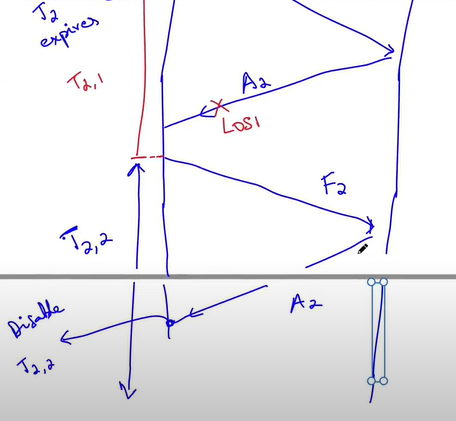 T2
expires
T2,1
A2
Lost
F2
T2,2
A2
Disable
T2,2